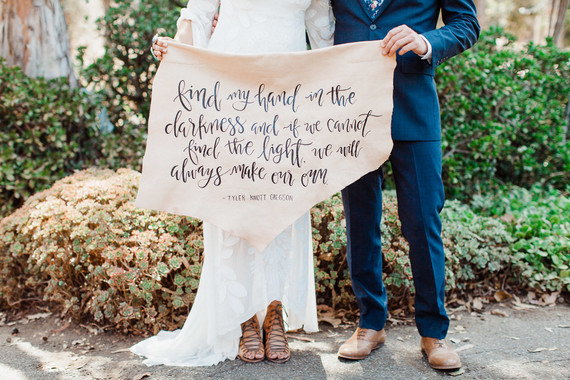 find my hand in the
darkness and if we cannot
find the light, we will
always make our own
- TYLER KNOTT GREGSON